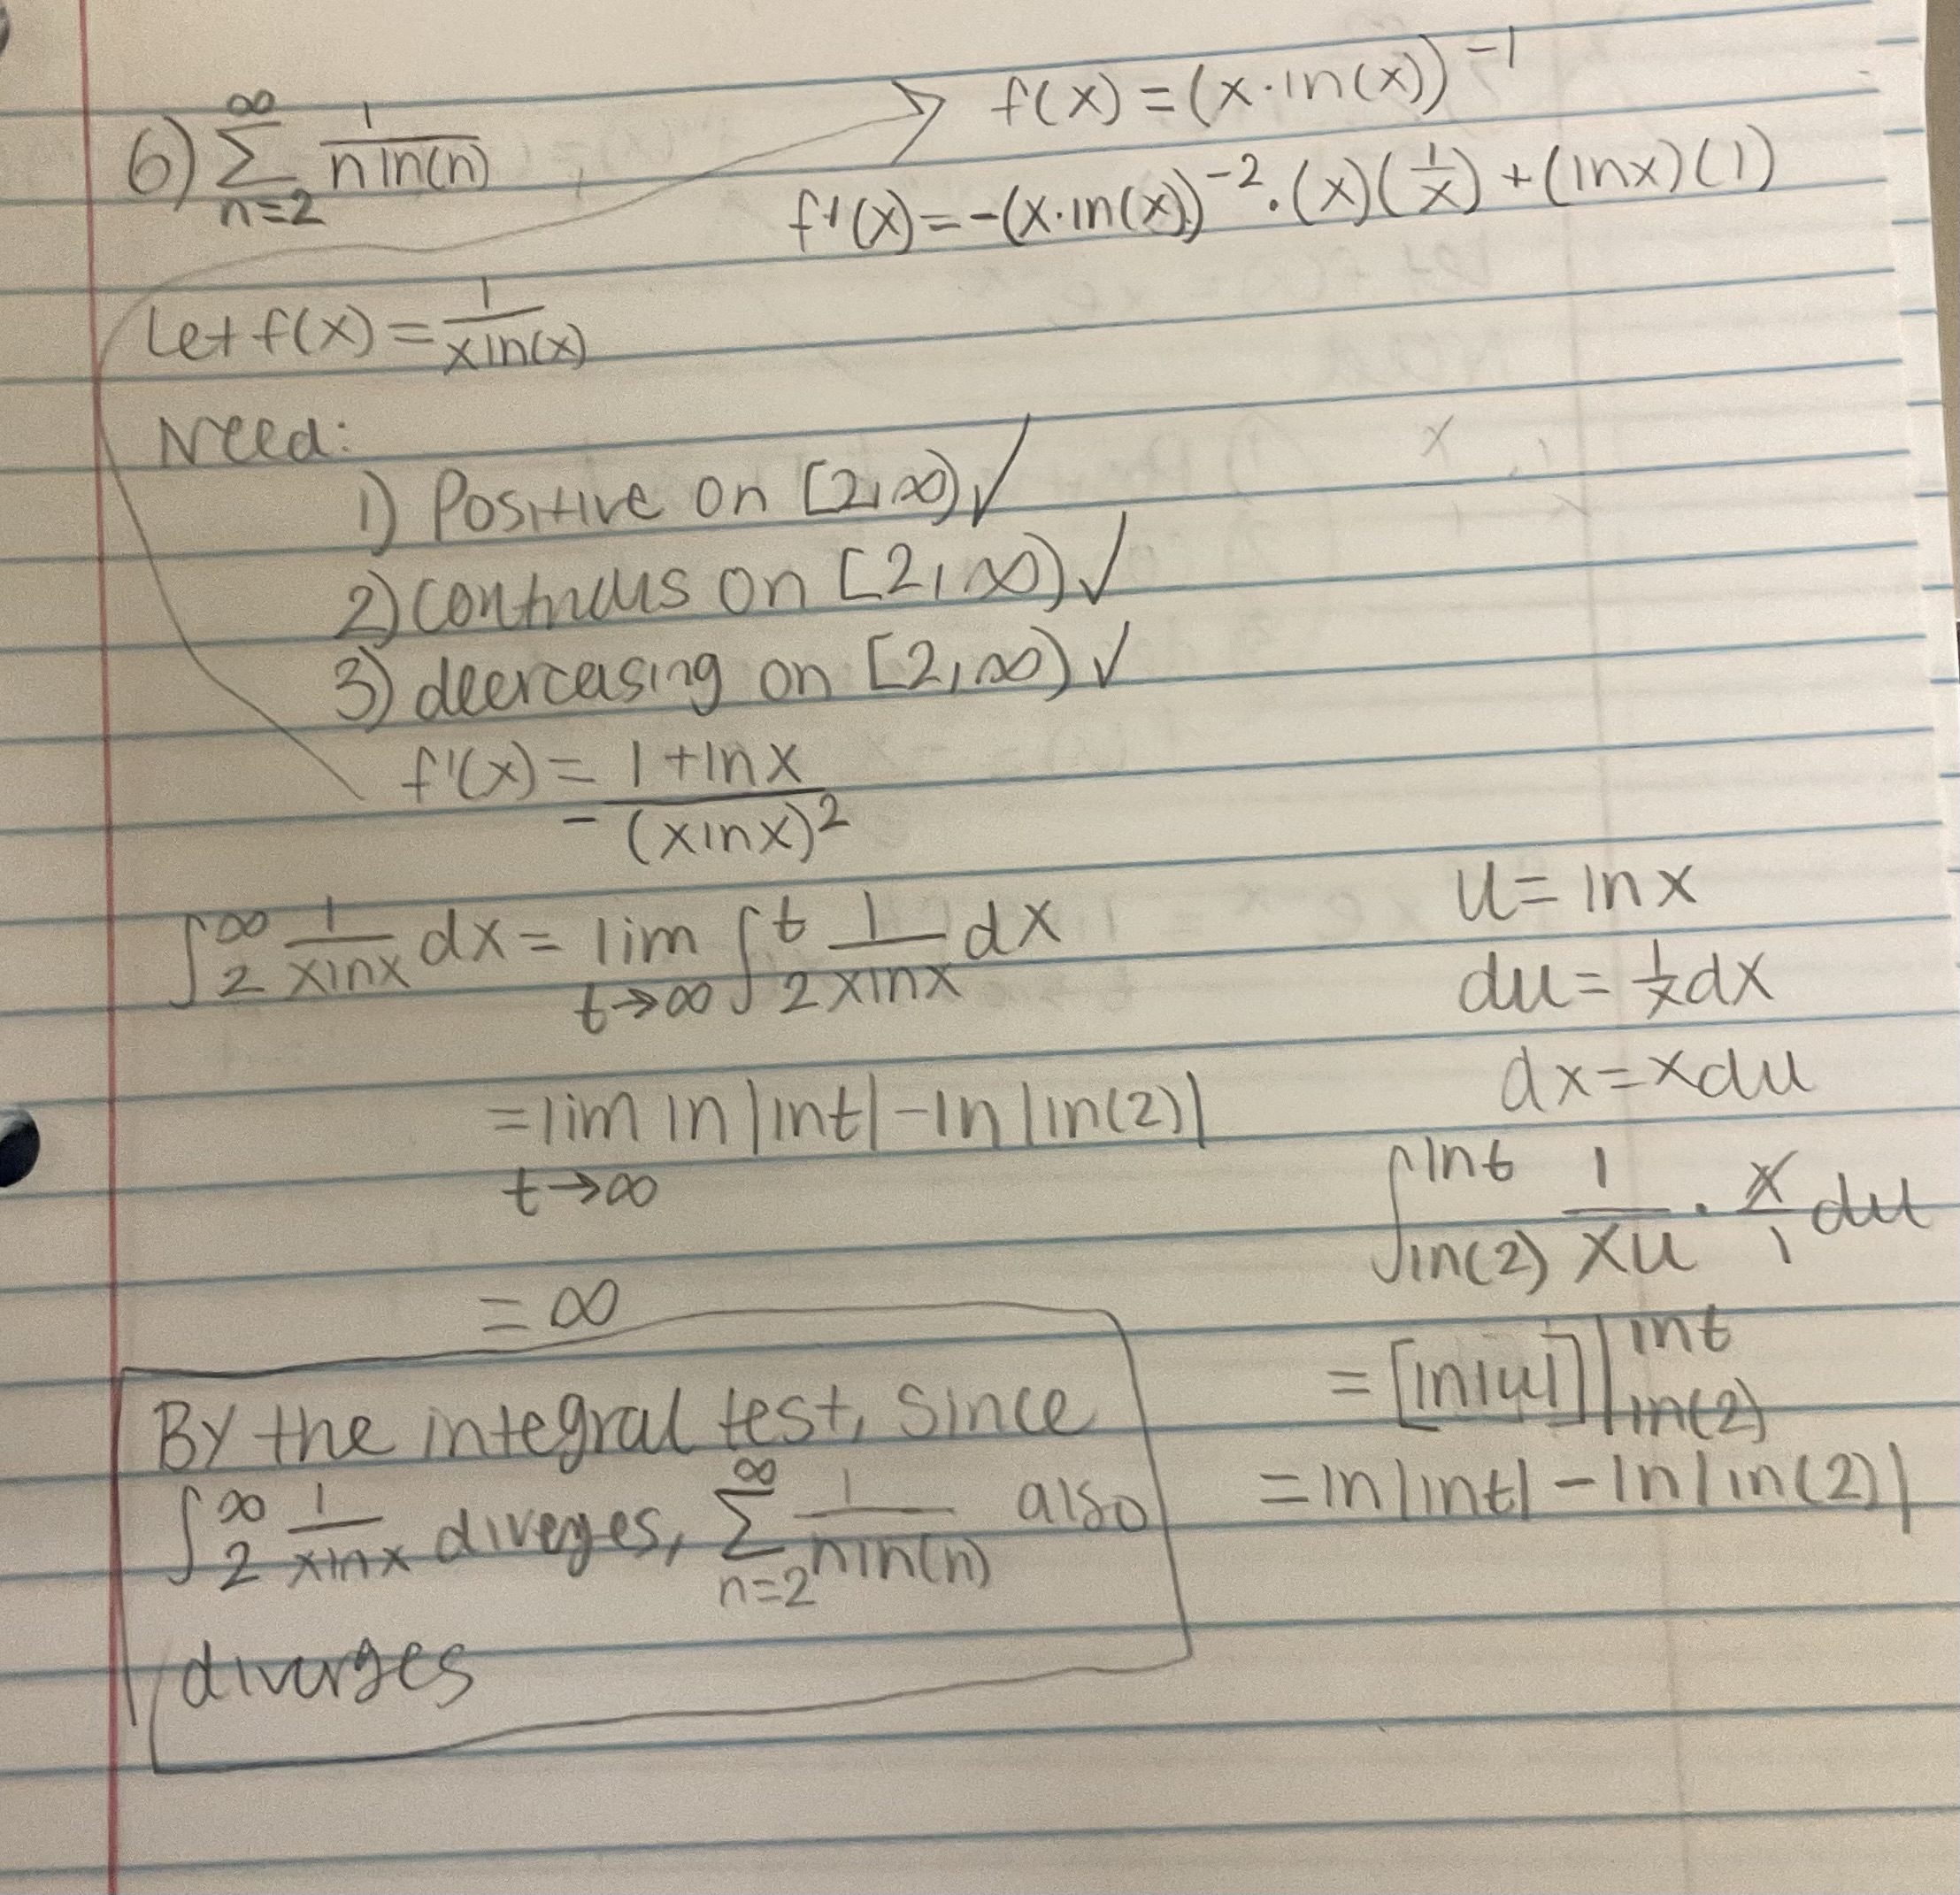 6) ∑_{n=2}^{∞} 1/(n ln(n))
→ f(x) = (x·ln(x))^{-1}
f'(x) = -(x·ln(x))^{-2}·(x)(1/x) + (lnx)(1)
Let f(x) = 1/(x ln(x))
Need:
1) Positive on [2,∞) ✓
2) continuous on [2,∞) ✓
3) decreasing on [2,∞) ✓
f'(x) = - (1+lnx)/(xlnx)^2
∫_2^∞ 1/(xlnx) dx = lim_{t→∞} ∫_2^t 1/(xlnx) dx
= lim_{t→∞} ln|lnt| - ln|ln(2)|
= ∞
u = lnx
du = 1/x dx
dx = xdu
∫_{ln(2)}^{lnt} 1/(xu) · x/1 du
= [ln|u|]|_{ln(2)}^{lnt}
= ln|lnt| - ln|ln(2)|
By the integral test, since
∫_2^∞ 1/(xlnx) diverges, ∑_{n=2}^{∞} 1/(nln(n)) also
diverges